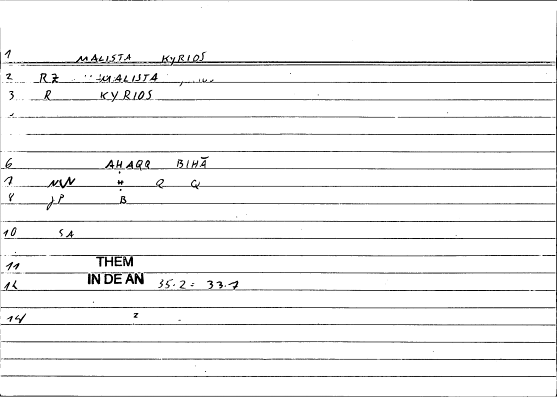 1 MALISTA KYRIOS
2 RZ MALISTA
3 R KYRIOS
6 AḤAQQ BIHĀ
7 NVN Ḥ Q Q
8 JP B
10 SA
11 THEM
12 IN DE AN 35.2 = 33.7
14 z